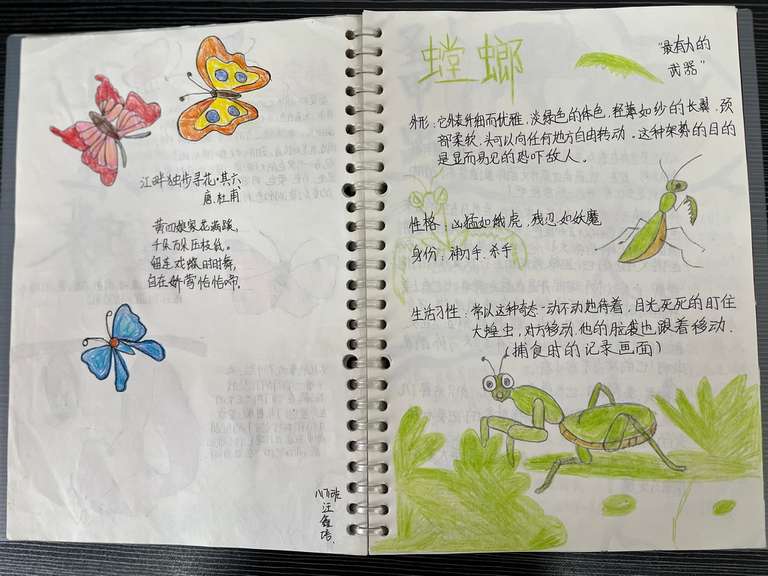 江畔独步寻花·其六
唐.杜甫
黄四娘家花满蹊,
千朵万朵压枝低。
留连戏蝶时时舞,
自在娇莺恰恰啼。
汪
螳螂
"最有力的
武器"
外形:它外表纤细而优雅,淡绿色的体色,轻薄如纱的长翼,颈
部柔软,头可以向任何地方自由转动。这种架势的目的
是显而易见的恐吓敌人。
性格:凶猛如饿虎,残忍如妖魔
身份:神刀手.杀手
生活习性:常以这种奇态一动不动地待着,目光死死的盯住
大蝗虫,对方移动.他的脑袋也跟着移动.
(捕食时的记录画面)